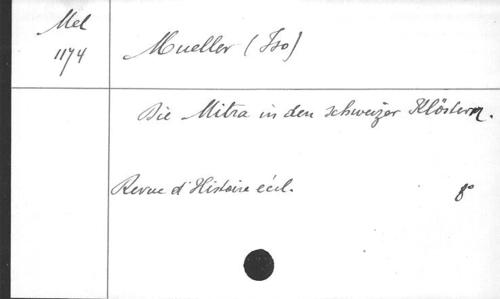 Mel
1174
Mueller (Iso)
Die Mitra in den schweizer Klöstern.
Revue d'Histoire eccl.
8°